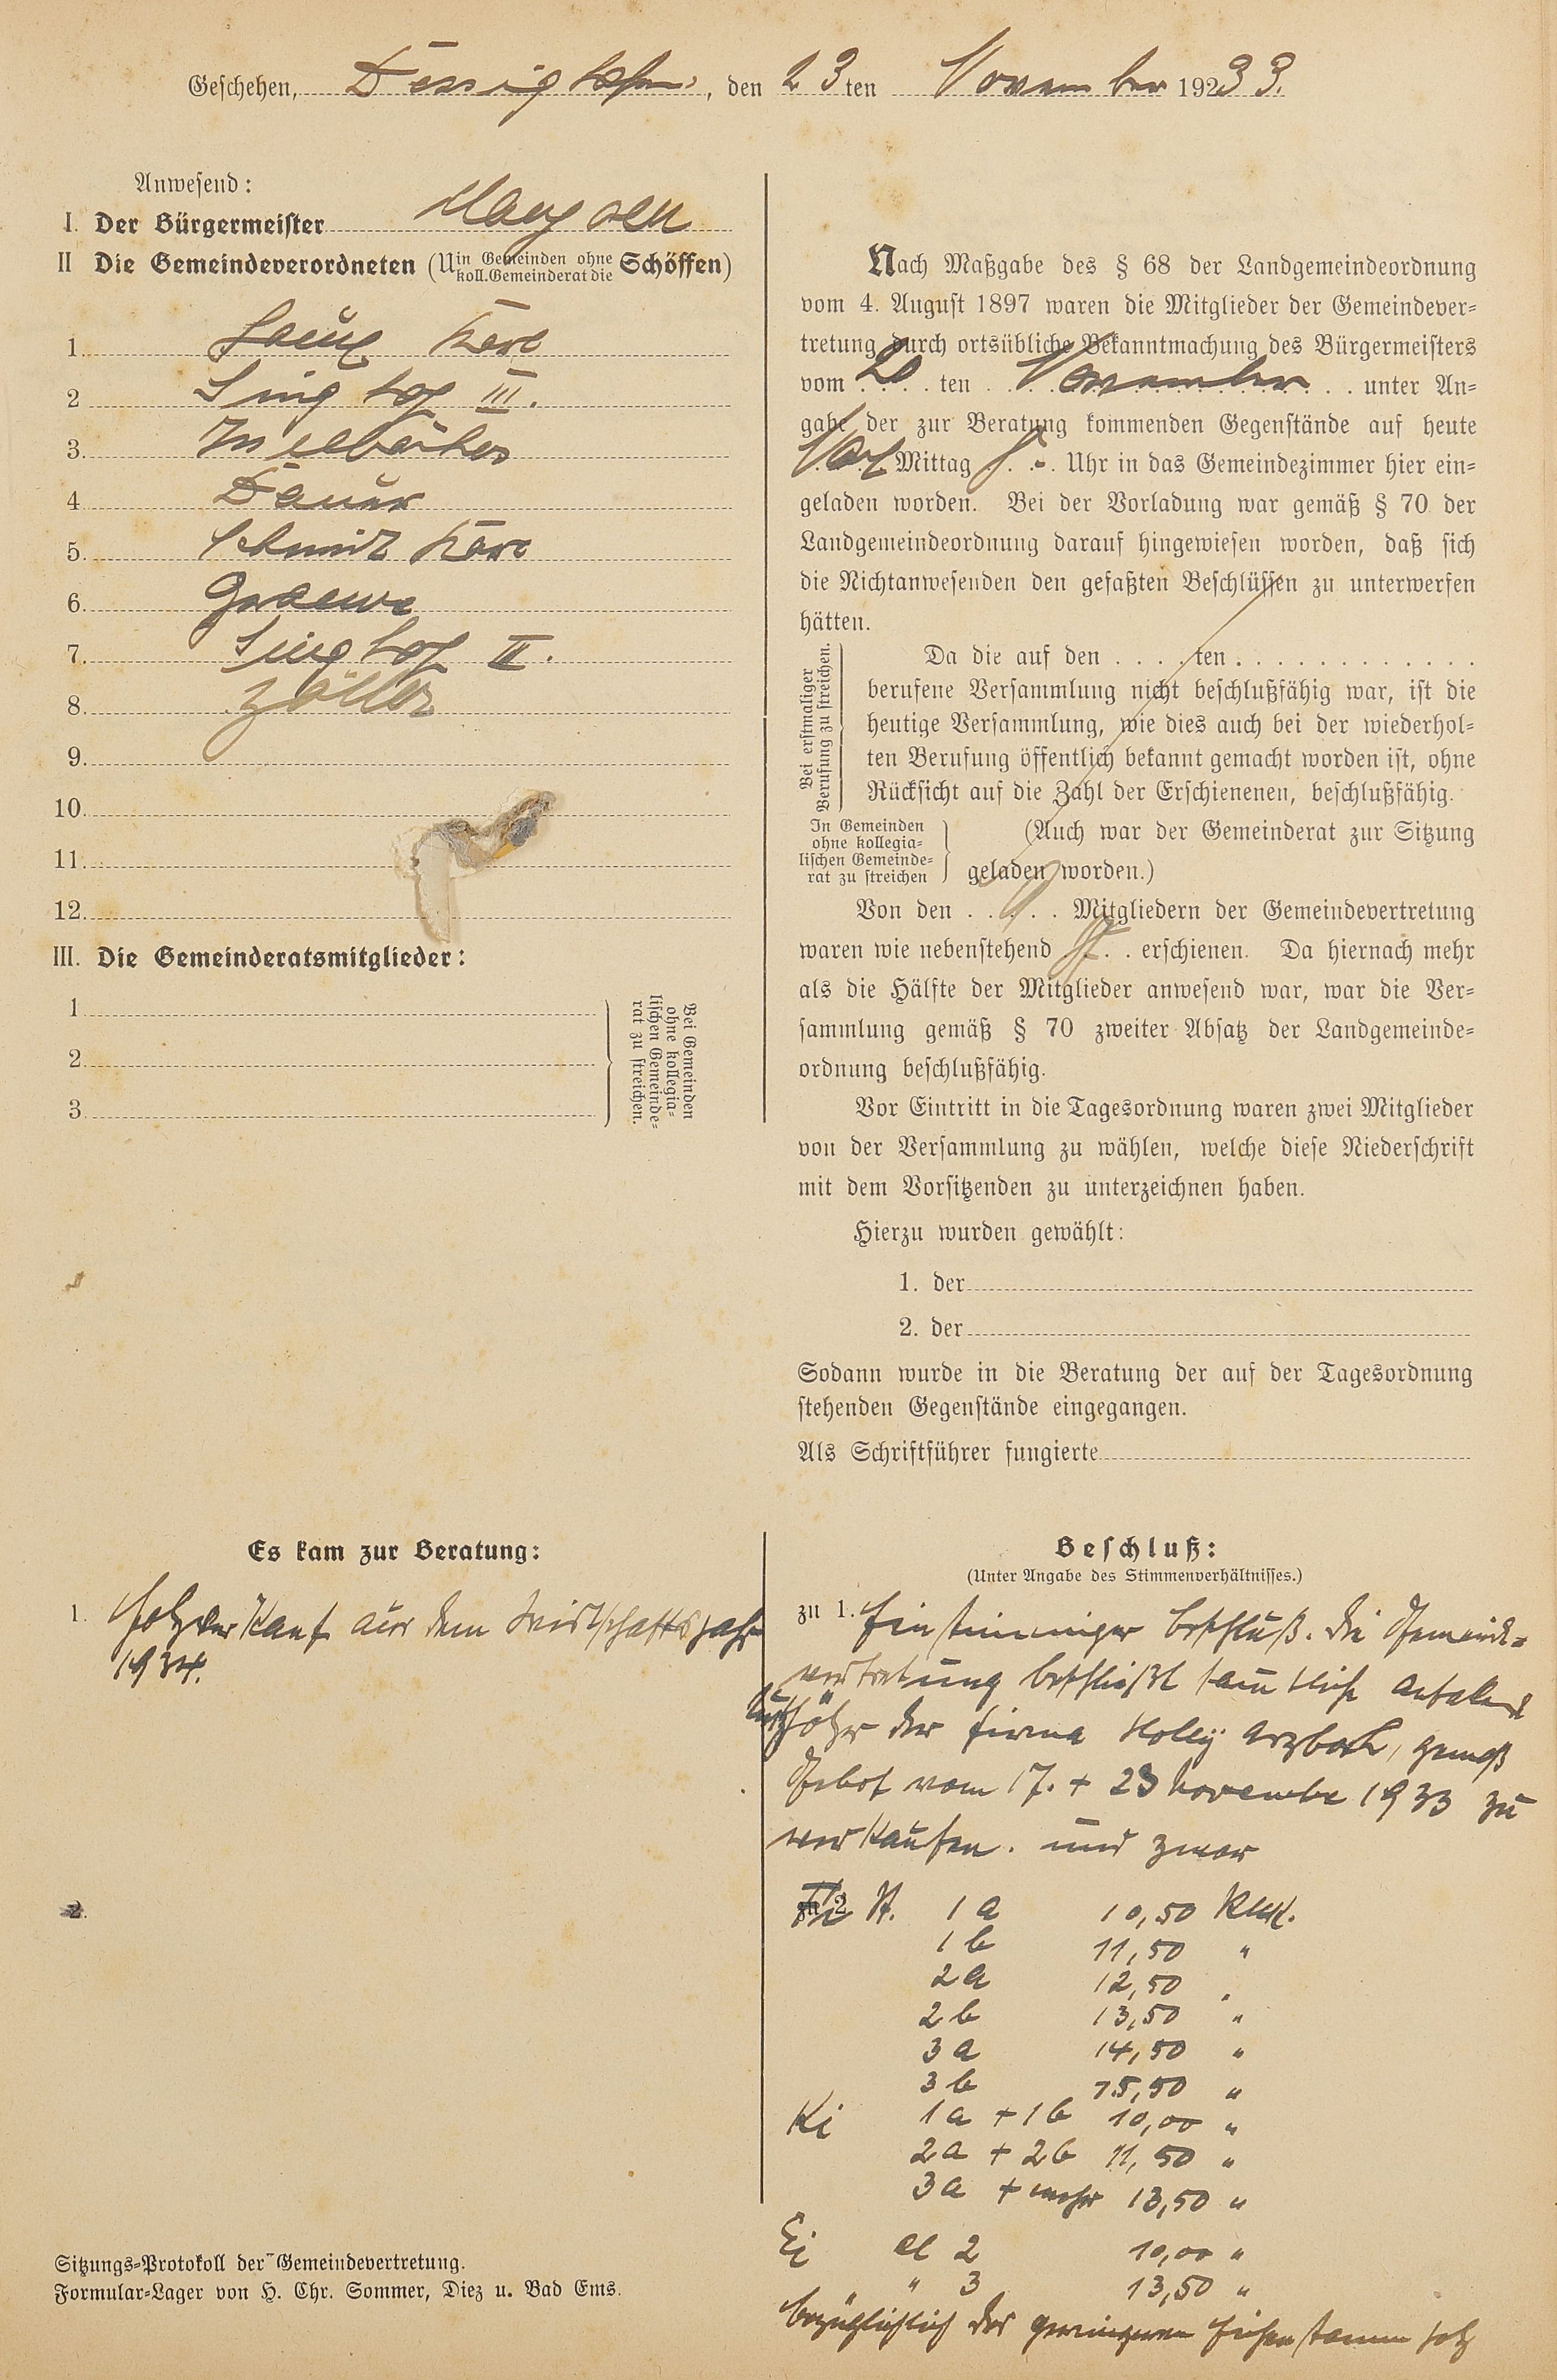 Geschehen, Dessighofen, den 23ten November 19233.
Anwesend:
I. Der Bürgermeister
II Die Gemeindeverordneten (U in Gemeinden ohne koll. Gemeinderat die Schöffen)
1. Karl
2 Singhof III.
3.
4 Bauer
5. Schmidt Karl
6.
7. Singhof II.
8. Zöller
9.
10.
11.
12.
III. Die Gemeinderatsmitglieder:
1
2
3.
Bei Gemeinden
ohne kollegia-
lischen Gemeinde-
rat zu streichen.
Nach Maßgabe des § 68 der Landgemeindeordnung
vom 4. August 1897 waren die Mitglieder der Gemeindever-
tretung durch ortsübliche Bekanntmachung des Bürgermeisters
vom 20 ten November unter An-
gabe der zur Beratung kommenden Gegenstände auf heute
Mittag Uhr in das Gemeindezimmer hier ein-
geladen worden. Bei der Vorladung war gemäß § 70 der
Landgemeindeordnung darauf hingewiesen worden, daß sich
die Nichtanwesenden den gefaßten Beschlüssen zu unterwerfen
hätten.
Bei erstmaliger
Berufung zu streichen.
Da die auf den . . . . ten . . . . . . . . . . . .
berufene Versammlung nicht beschlußfähig war, ist die
heutige Versammlung, wie dies auch bei der wiederhol-
ten Berufung öffentlich bekannt gemacht worden ist, ohne
Rücksicht auf die Zahl der Erschienenen, beschlußfähig.
In Gemeinden
ohne kollegia-
lischen Gemeinde-
rat zu streichen
(Auch war der Gemeinderat zur Sitzung
geladen worden.)
Von den . . . . . Mitgliedern der Gemeindevertretung
waren wie nebenstehend . . . erschienen. Da hiernach mehr
als die Hälfte der Mitglieder anwesend war, war die Ver-
sammlung gemäß § 70 zweiter Absatz der Landgemeinde-
ordnung beschlußfähig.
Vor Eintritt in die Tagesordnung waren zwei Mitglieder
von der Versammlung zu wählen, welche diese Niederschrift
mit dem Vorsitzenden zu unterzeichnen haben.
Hierzu wurden gewählt:
1. der
2. der
Sodann wurde in die Beratung der auf der Tagesordnung
stehenden Gegenstände eingegangen.
Als Schriftführer fungierte
Es kam zur Beratung:
1. Holzverkauf aus dem Wirtschaftsjahr
1934.
2.
Beschluß:
(Unter Angabe des Stimmenverhältnisses.)
zu 1. Einstimmiger Beschluß. Die Gemeinde-
vertretung beschließt sämtliche
der Firma Holly Arzbach, gemäß
Gebot vom 17. + 23 November 1933 zu
verkaufen. und zwar
zu 2
Fi St. 1 a 10,50 RMk.
1 b 11,50 "
2 a 12,50 "
2 b 13,50 "
3 a 14,50 "
3 b 15,50 "
Ki 1 a + 1 b 10,00 "
2 a + 2 b 11,50 "
3 a + mehr 13,50 "
Ei Cl 2 10,00 "
" 3 13,50 "
bezüglich des geringeren
Sitzungs-Protokoll der Gemeindevertretung.
Formular-Lager von H. Chr. Sommer, Diez u. Bad Ems.